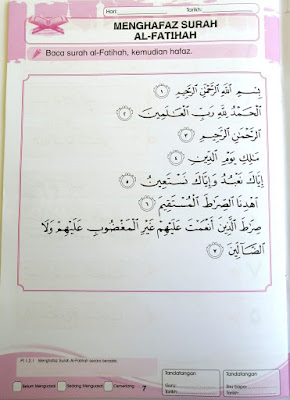 Hari: Tarikh:
MENGHAFAZ SURAH
AL-FATIHAH
Baca surah al-Fatihah, kemudian hafaz.
بِسْمِ ٱللَّهِ ٱلرَّحْمَٰنِ ٱلرَّحِيمِ ١
ٱلْحَمْدُ لِلَّهِ رَبِّ ٱلْعَٰلَمِينَ ٢
ٱلرَّحْمَٰنِ ٱلرَّحِيمِ ٣
مَٰلِكِ يَوْمِ ٱلدِّينِ ٤
إِيَّاكَ نَعْبُدُ وَإِيَّاكَ نَسْتَعِينُ ٥
ٱهْدِنَا ٱلصِّرَٰطَ ٱلْمُسْتَقِيمَ ٦
صِرَٰطَ ٱلَّذِينَ أَنْعَمْتَ عَلَيْهِمْ غَيْرِ ٱلْمَغْضُوبِ عَلَيْهِمْ وَلَا
ٱلضَّآلِّينَ ٧
PI 1.2.1 Menghafaz Surah Al-Fatihah secara beradab.
Belum Menguasai Sedang Menguasai Cemerlang 7
Tandatangan Tandatangan
Guru: Ibu bapa:
Tarikh: Tarikh: